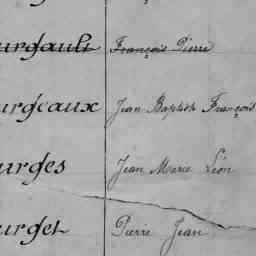 urgault François Pierre
urgeaux Jean Baptiste François
urges Jean Marie Léon
urget Pierre Jean